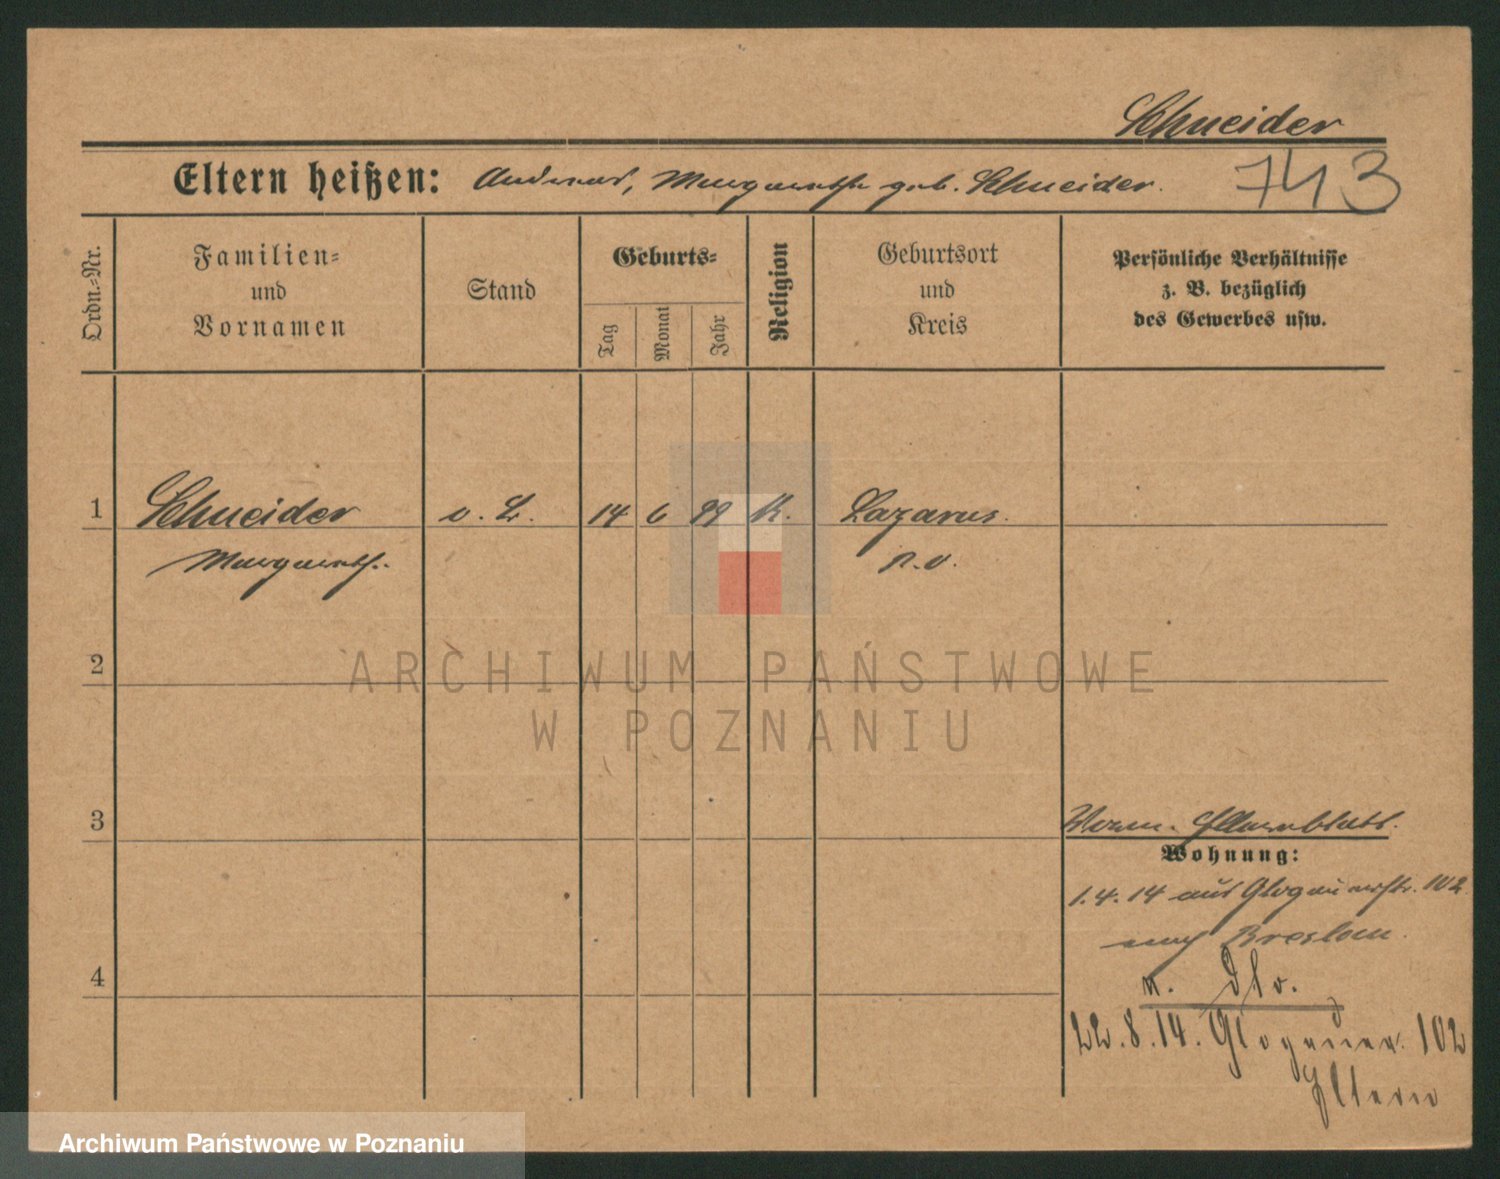 Schneider
Eltern heißen: Andreas, Margarethe geb. Schneider.
743
Ordn.-Nr.
Familien-
und
Vornamen
Stand
Geburts-
Tag
Monat
Jahr
Religion
Geburtsort
und
Kreis
Persönliche Verhältnisse
z. B. bezüglich
des Gewerbes usw.
1 Schneider o. B. 14 6 99 K. Lazarus.
Margareth. P. O.
2
3
Elternblatt.
Wohnung:
1.4.14 aus Glogauerstr. 102
nach Breslau.
22.8.14. Glogauer 102
Eltern
4
ARCHIWUM PAŃSTWOWE
W POZNANIU
Archiwum Państwowe w Poznaniu